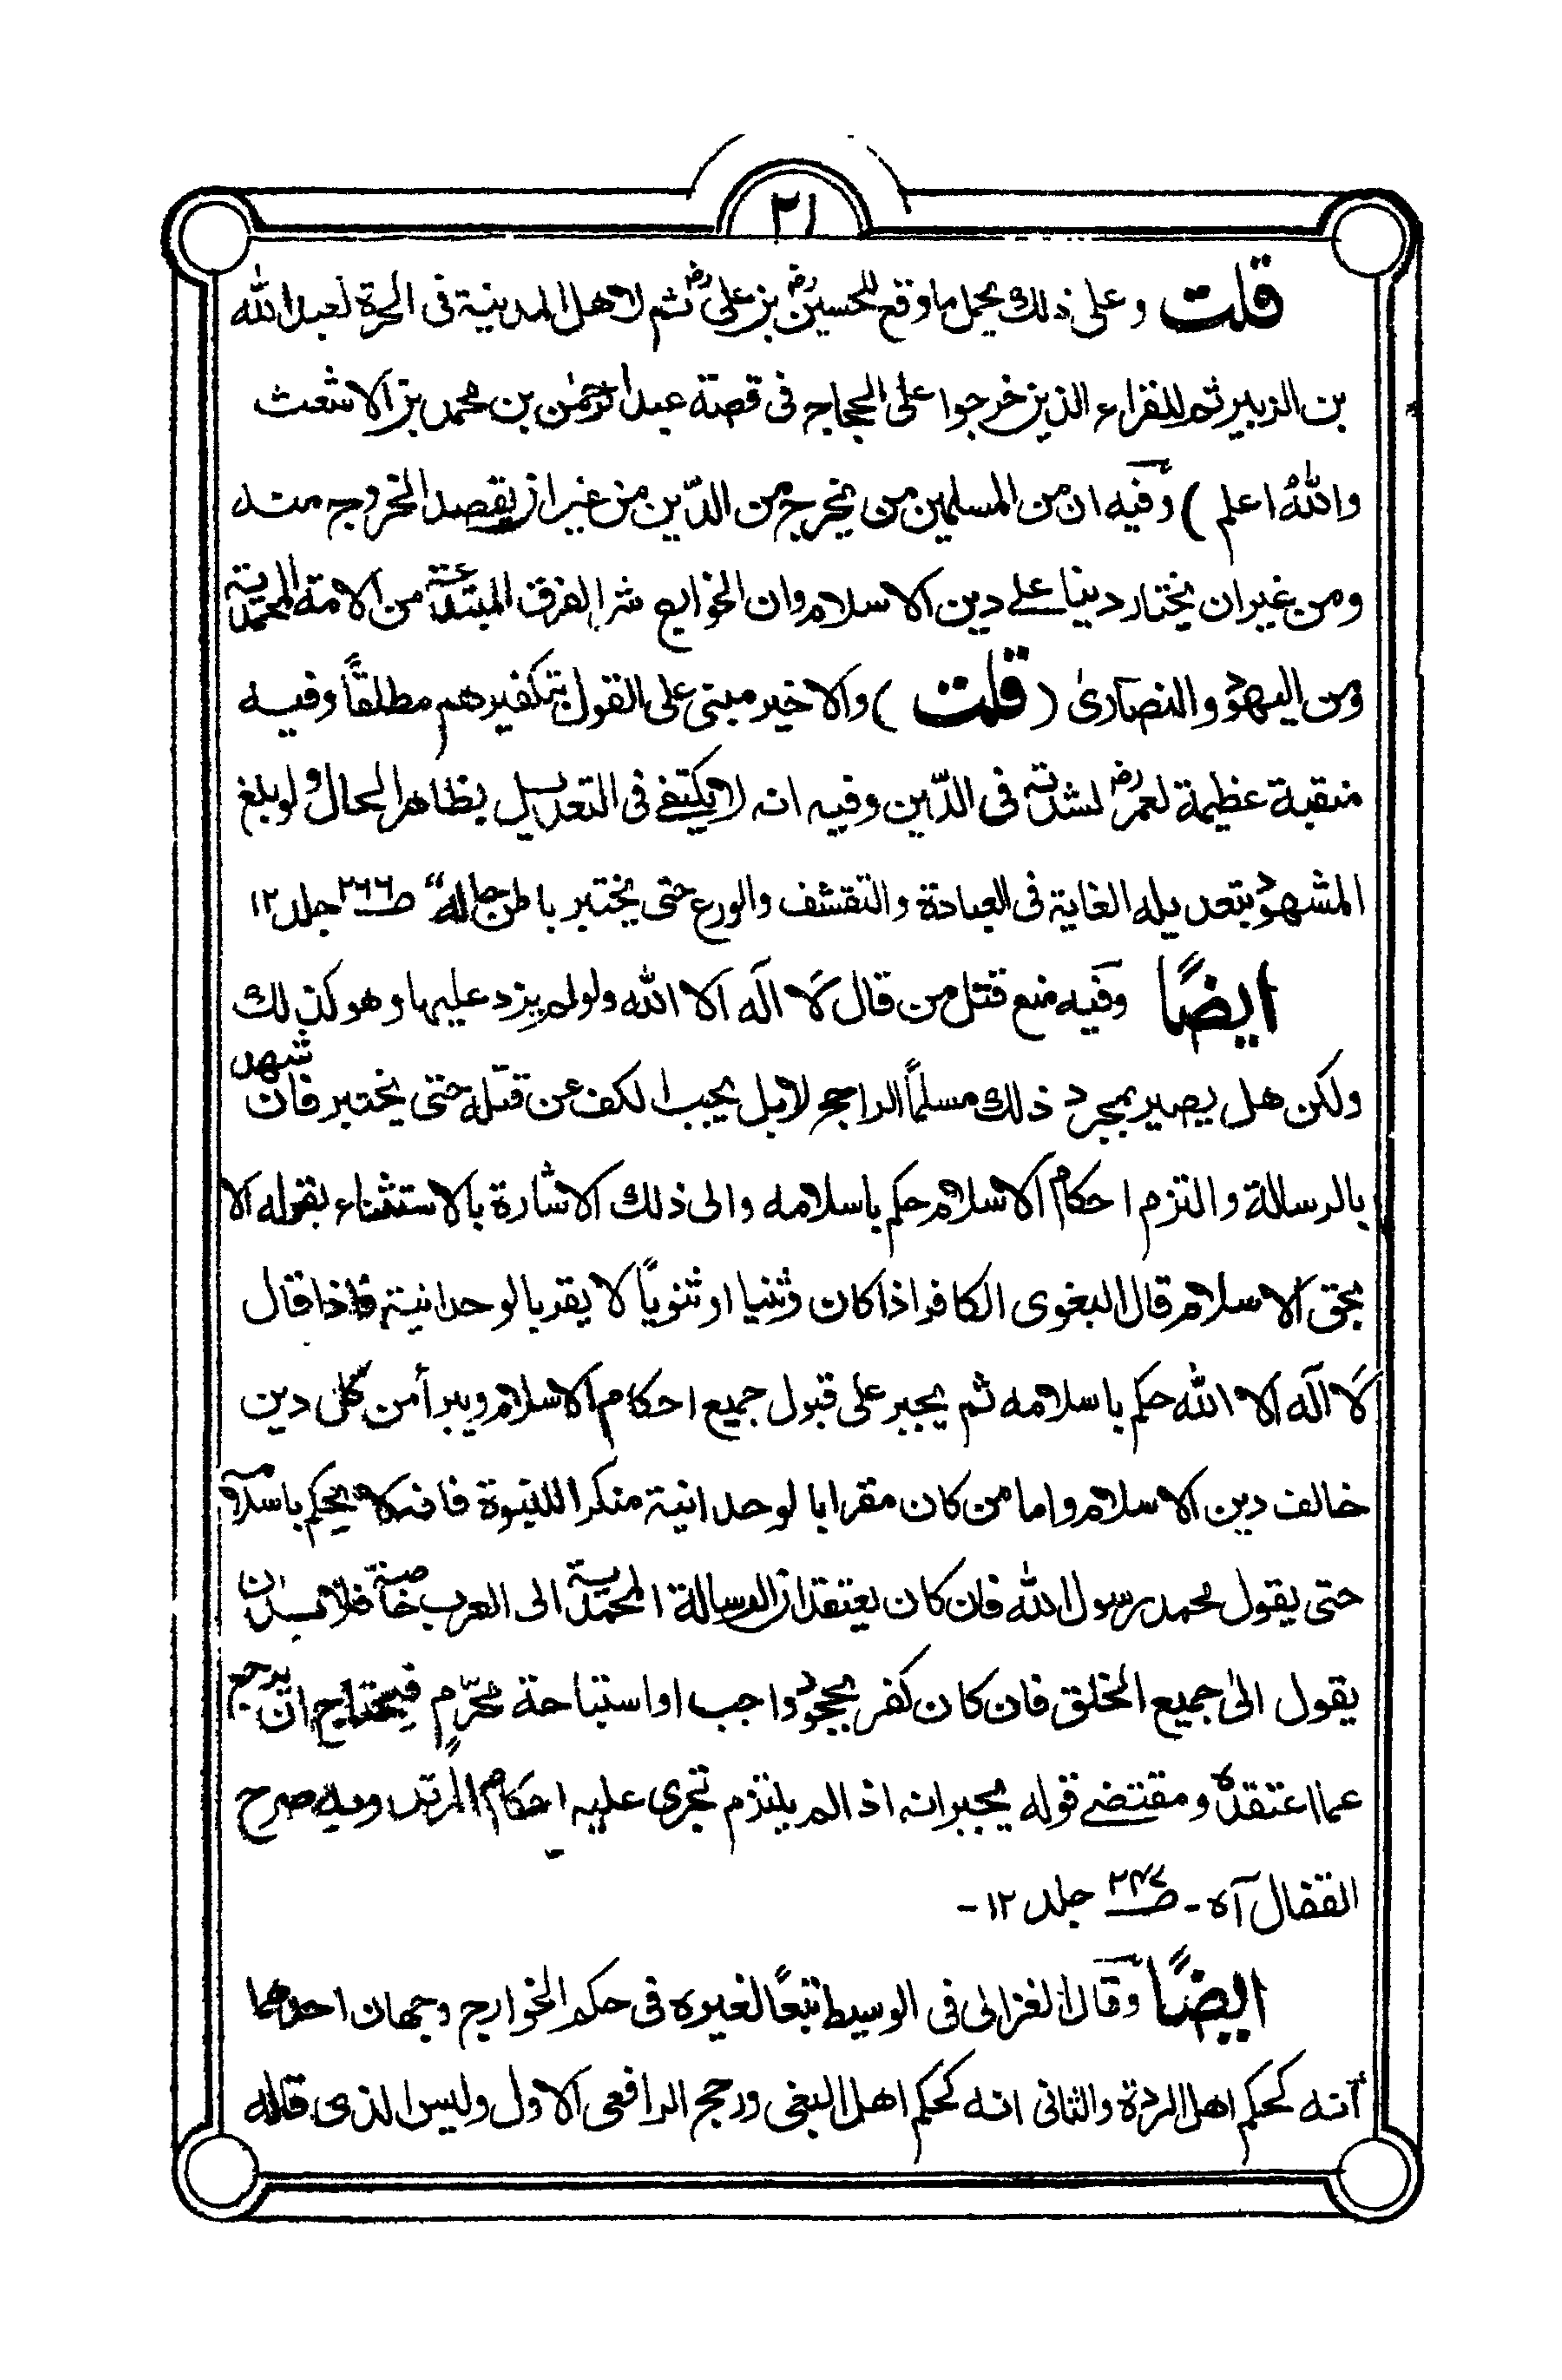 ۲۱
قلت وعلى ذلك يحمل ما وقع للحسين رض بن على رض ثم لاهل المدينة فى الحرة لعبد الله
بن الزبير ثم للقراء الذين خرجوا على الحجاج فى قصة عبد الرحمٰن بن محمد بن الاشعث
والله اعلم ) وفيه ان من المسلمين من يخرج من الدّين من غير ان يقصد الخروج منه
ومن غير ان يختار دينا على دين الاسلام وان الخوارج شر الفرق المبتدعة من الامة المحمدية
ومن اليهود والنصارىٰ ( قلت ) والاخير مبنى على القول بتكفيرهم مطلقاً وفيه
منقبة عظيمة لعمر رض لشدته فى الدّين وفيه انه لا يكتفى فى التعديل بظاهر الحال ولو بلغ
المشهود بتعديله الغاية فى العبادة والتقشف والورع حتى يختبر باطن حاله“ صـ۲۶۶ جلد ۱۲
ايضًا وفيه منع قتل من قال لا اله الا الله ولو لم يزد عليها وهو كذلك
ولكن هل يصير بمجرد ذلك مسلماً الراجح لا بل يجب الكف عن قتله حتى يختبر فان شهد
بالرسالة والتزم احكام الاسلام حكم باسلامه والى ذلك الاشارة بالاستثناء بقوله الا
بحق الاسلام قال البغوى الكافر اذا كان وثنيا او ثنويًا لا يقر بالوحدانية فاذا قال
لا اله الا الله حكم باسلامه ثم يجبر على قبول جميع احكام الاسلام ويبرأ من كل دين
خالف دين الاسلام واما من كان مقرا بالوحدانية منكرا للنبوة فانه لا يحكم باسلامه
حتى يقول محمد رسول الله فان كان يعتقد ان الرسالة المحمدية الى العرب خاصة فلا بد ان
يقول الىٰ جميع الخلق فان كان كفر بجحود واجب او استباحة محرّم فيحتاج ان يرجع
عما اعتقده ومقتضى قوله يجبر انه اذا لم يلتزم تجرى عليه احكام المرتد وبه صرح
القفال آه ـ صـ۲۴۷ جلد ۱۲ ـ
ايضًا وقال الغزالى فى الوسيط تبعًا لغيره فى حكم الخوارج وجهان احدهما
انه كحكم اهل الردة والثانى انه كحكم اهل البغى ورجح الرافعى الاول وليس الذى قاله